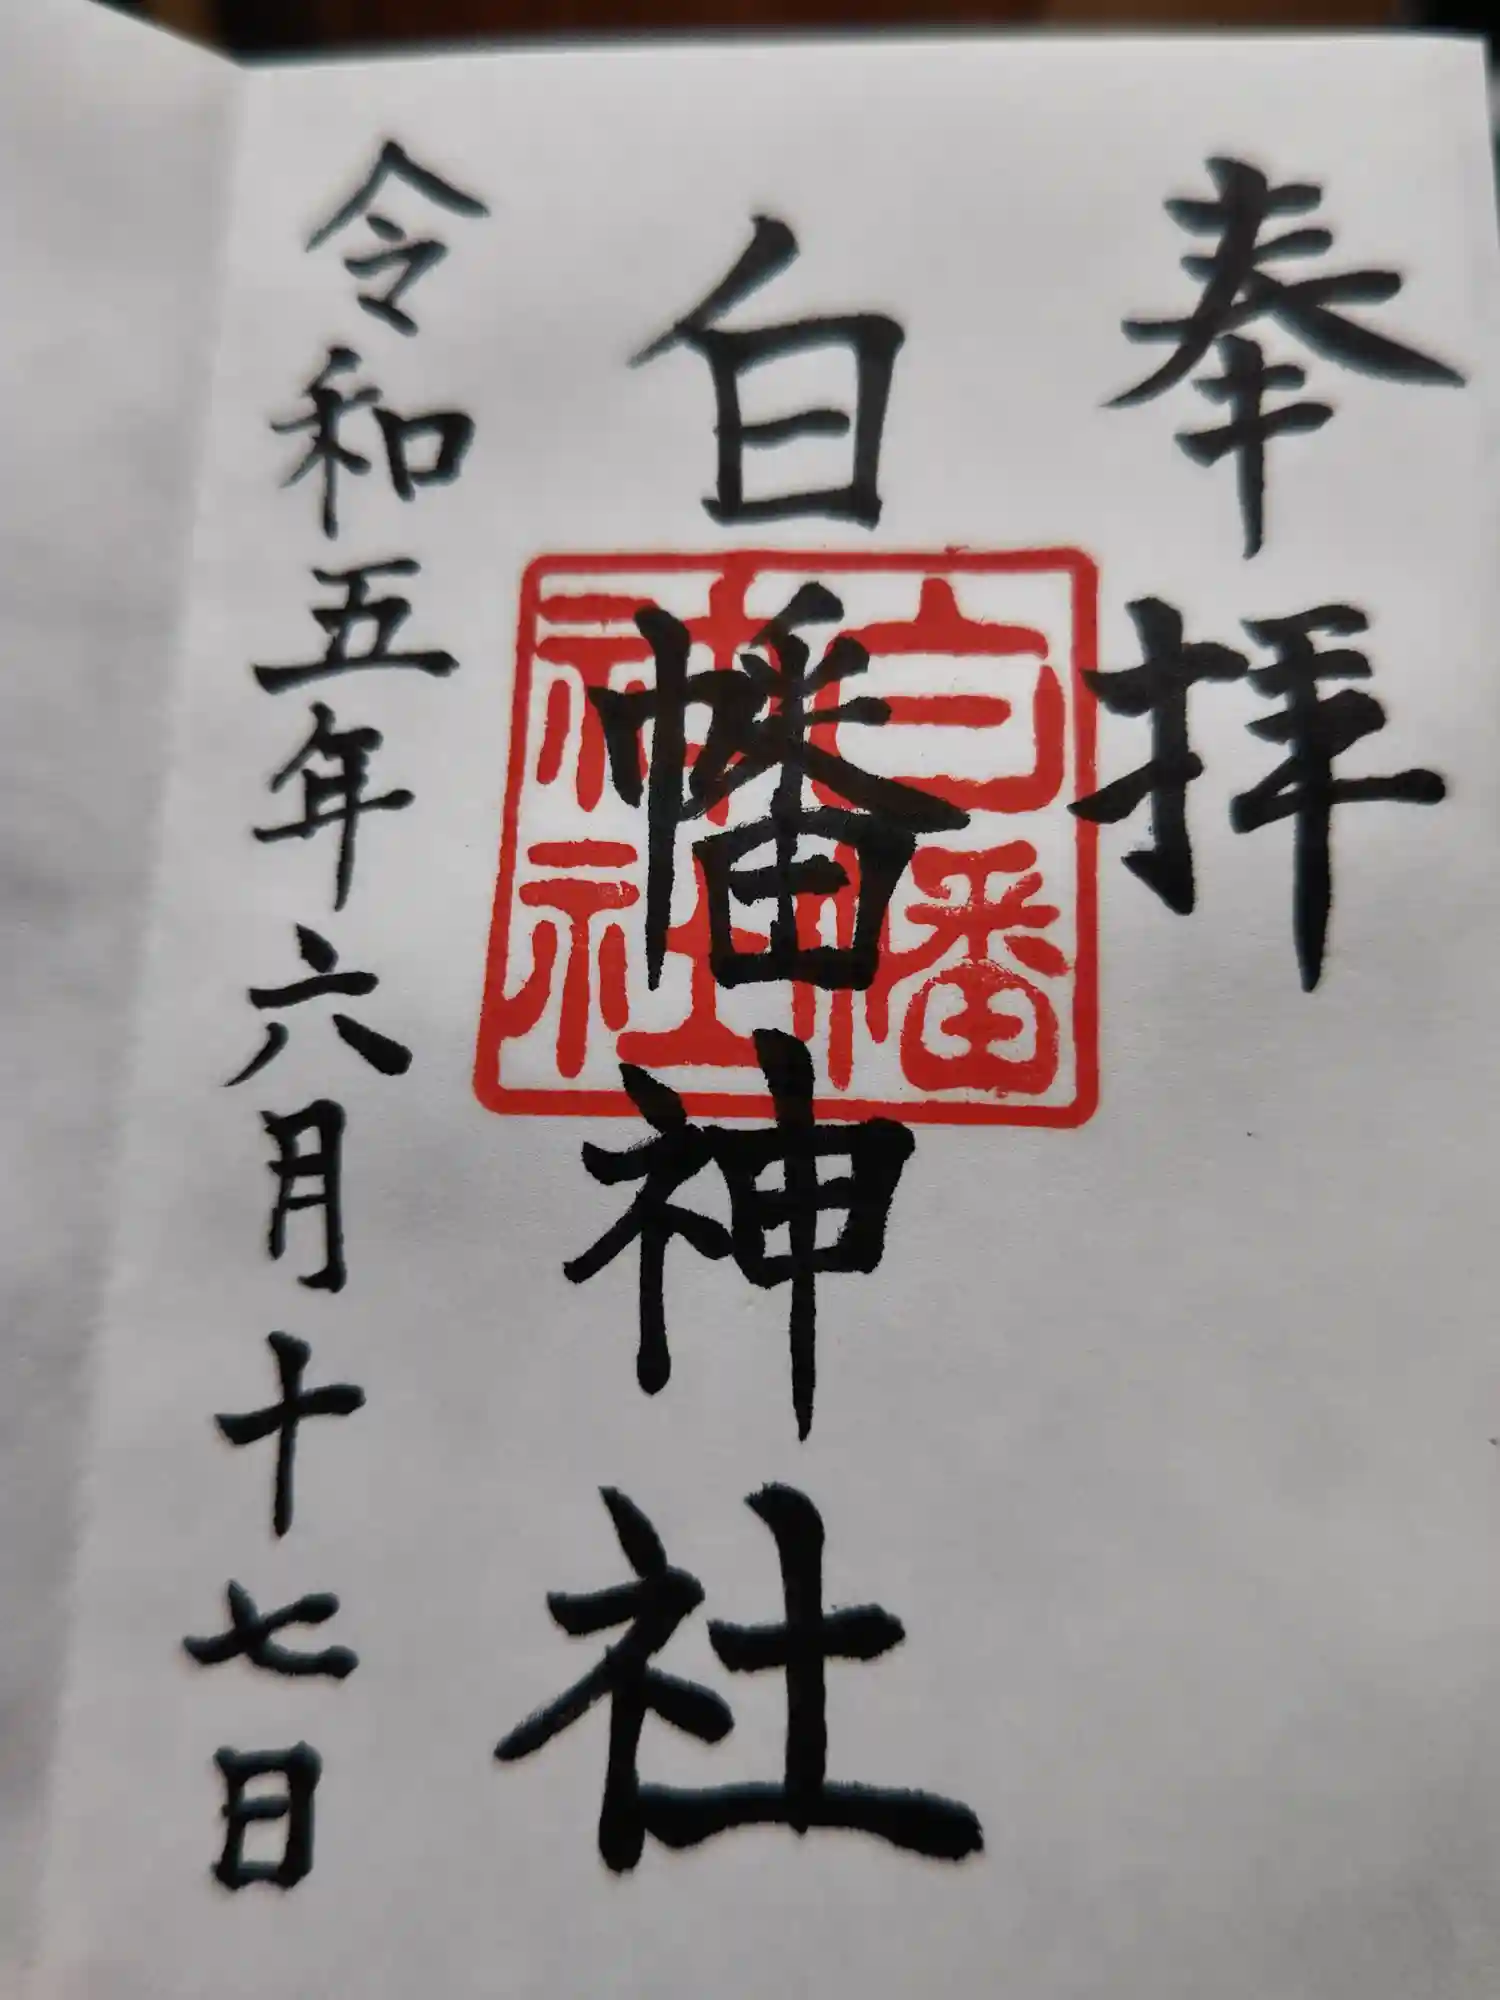 奉拝
白幡神社
白幡
神社
令和五年六月十七日